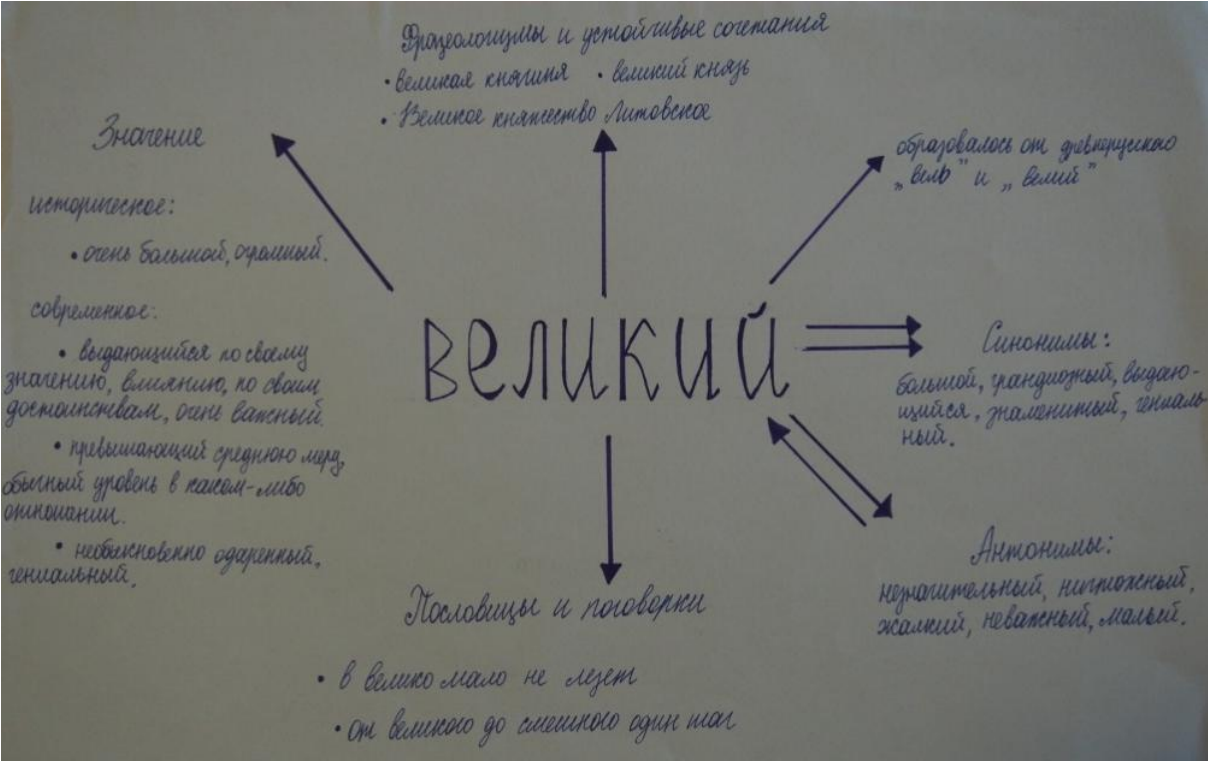 Фразеологизмы и устойчивые сочетания
• великая княгиня • великий князь
• Великое княжество Литовское
Значение
историческое:
• очень большой, огромный.
современное:
• выдающийся по своему
значению, влиянию, по своим
достоинствам, очень важный.
• превышающий среднюю меру,
обычный уровень в каком-либо
отношении.
• необыкновенно одаренный,
гениальный.
образовалось от древнерусского
„вель" и „велий"
великий
Синонимы:
большой, грандиозный, выдаю-
щийся, знаменитый, гениаль-
ный.
Антонимы:
незначительный, ничтожный,
жалкий, неважный, малый.
Пословицы и поговорки
• в велико мало не лезет
• от великого до смешного один шаг